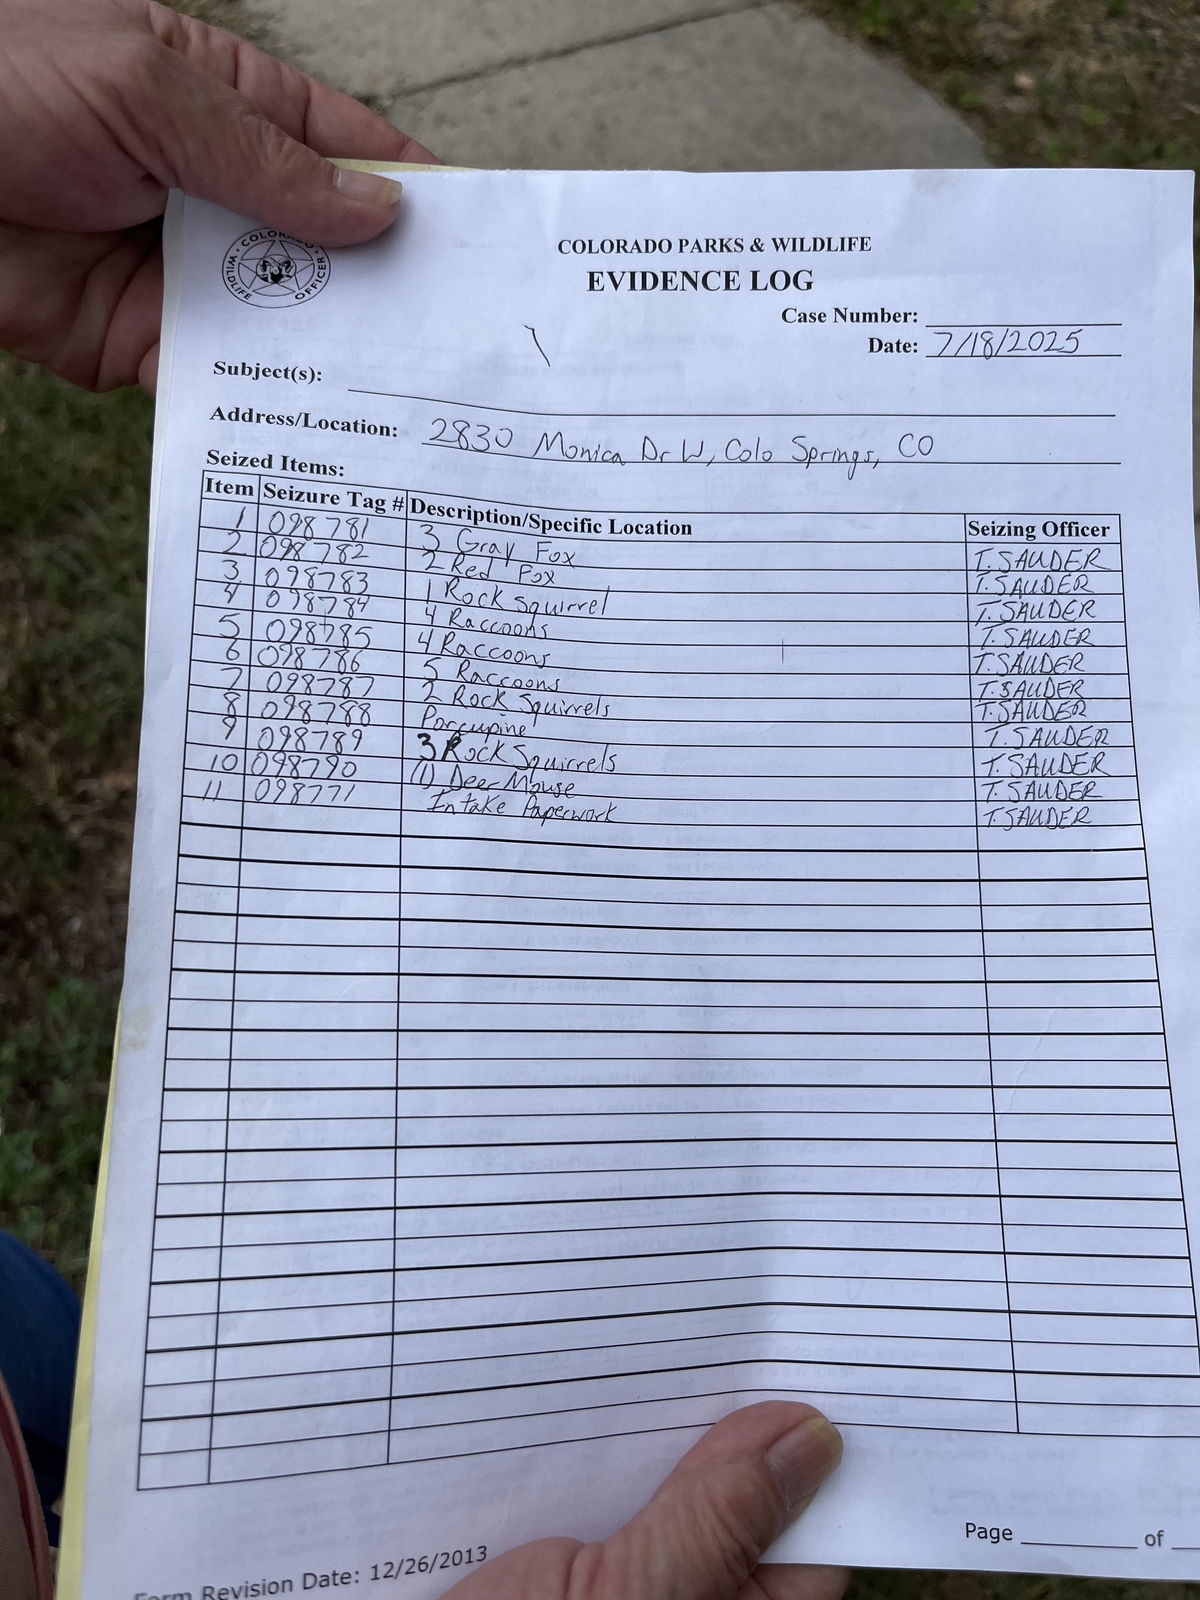 COLORADO
WILDLIFE OFFICER
COLORADO PARKS & WILDLIFE
EVIDENCE LOG
Case Number:
Date: 7/18/2025
Subject(s):
Address/Location: 2830 Monica Dr W, Colo Springs, CO
Seized Items:
Item Seizure Tag # Description/Specific Location Seizing Officer
1 098781 3 Gray Fox T. SAUDER
2 098782 2 Red Fox T. SAUDER
3 098783 1 Rock Squirrel T. SAUDER
4 098784 4 Raccoons T. SAUDER
5 098785 4 Raccoons T. SAUDER
6 098786 5 Raccoons T. SAUDER
7 098787 2 Rock Squirrels T. SAUDER
8 098788 Porcupine T. SAUDER
9 098789 3 Rock Squirrels T. SAUDER
10 098790 (1) Deer Mouse T. SAUDER
11 098771 Intake Paperwork T. SAUDER
Page of
Form Revision Date: 12/26/2013